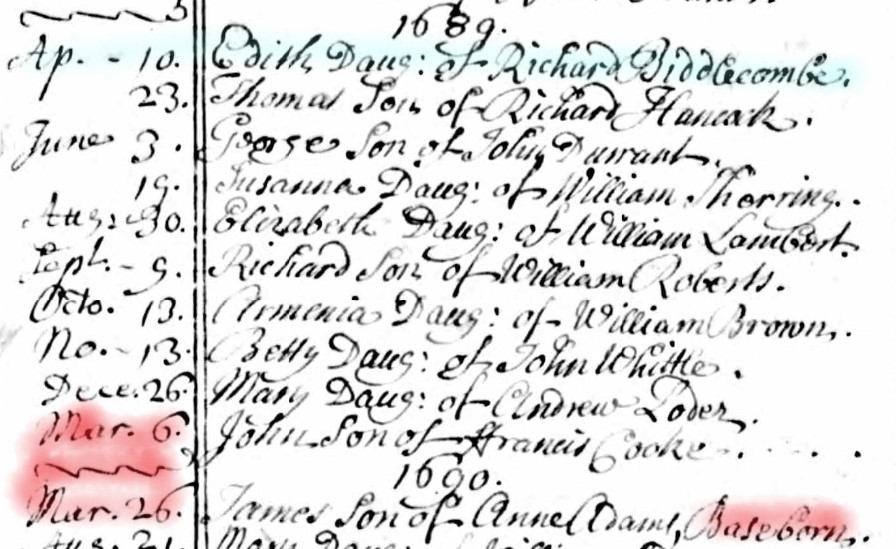 1689.
Ap. - 10. Edith Daug: of Richard Biddlecombe.
23. Thomas Son of Richard Hancock.
June 3. George Son of John Durrant.
19. Susanna Daug: of William Thorring.
Aug: 30. Elizabeth Daug: of William Lambert.
Sept. - 9. Richard Son of William Roberts.
Octo. 13. Armenia Daug: of William Brown.
No. - 13. Betty Daug: of John Whittle.
Dece. 26. Mary Daug: of Andrew Loder.
Mar. 6. John Son of Francis Cooke.
1690.
Mar. 26. James Son of Anne Adams, Baseborn.